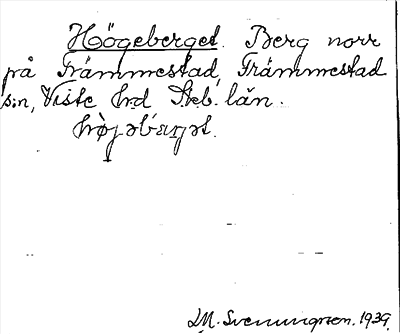 Högeberget. Berg norr
på Främmestad, Främmestad
sn, Viste hd Skb. län.
hø̀jəbærjət.
M. Svenungsson. 1939.